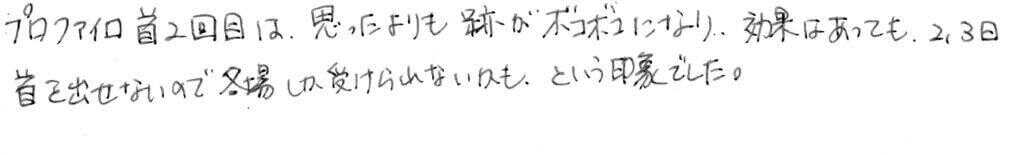 プロファイロ首2回目は、思ったよりも跡がボコボコになり、効果はあっても、2、3日
首を出せないので冬場しか受けられないかも、という印象でした。